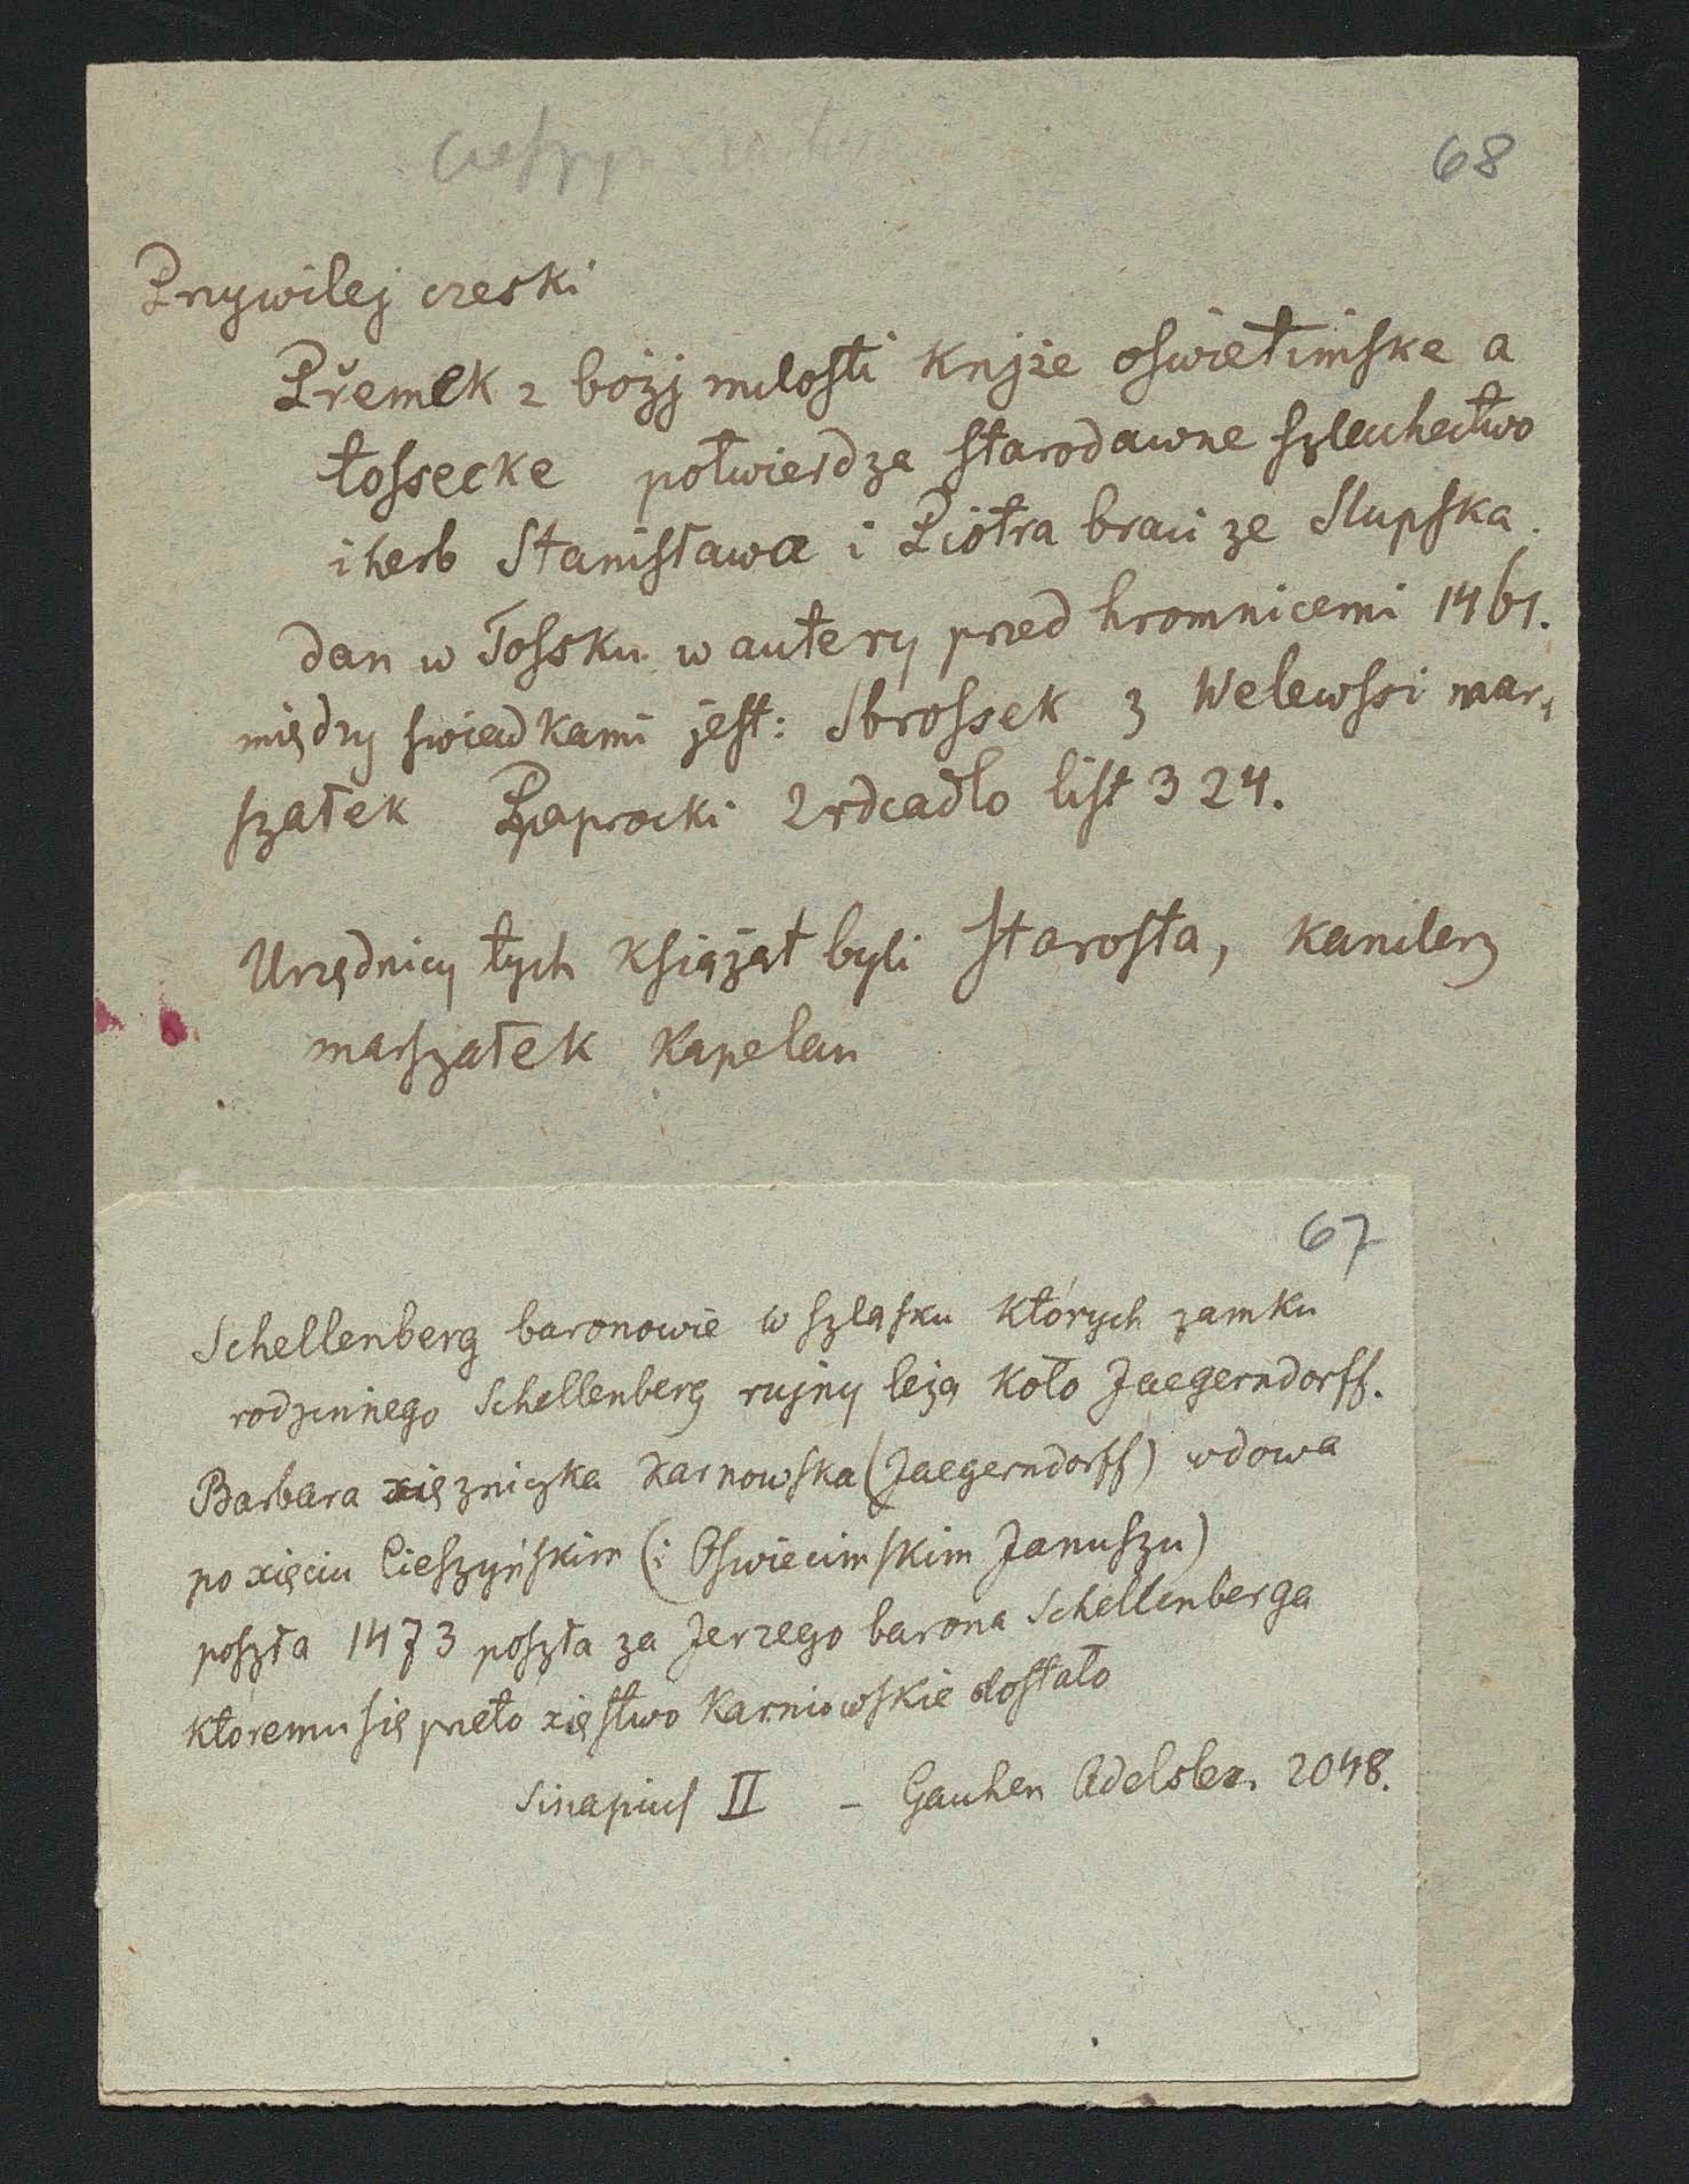 68
Przywilej czeski
Přemek z božj milosti Knjže oswietimske a
tossecke potwierdza starodawne szlachectwo
i herb Stanisława i Piotra braci ze Slupska.
dan w Tossku w autery przed hromnicemi 1461.
między swiadkami jest: Sbrossek z Welewssi mar-
szałek Paprocki Zrdcadlo list 324.
Urzędnicy tych Książąt byli Starosta, kanclerz
marszałek Kapelan
67
Schellenberg baronowie w Szląsku których zamku
rodzinnego Schellenberg rujny leżą koło Jaegerndorff.
Barbara xiężniczka Karnowska (Jaegerndorff) wdowa
po xięciu Cieszyńskim (i Oswiecimskim Januszu)
poszła 1473 poszła za Jerzego barona Schellenberga
któremu się przeto xięstwo Karniowskie dostało
Sinapius II – Gauhen Adelslex. 2048.